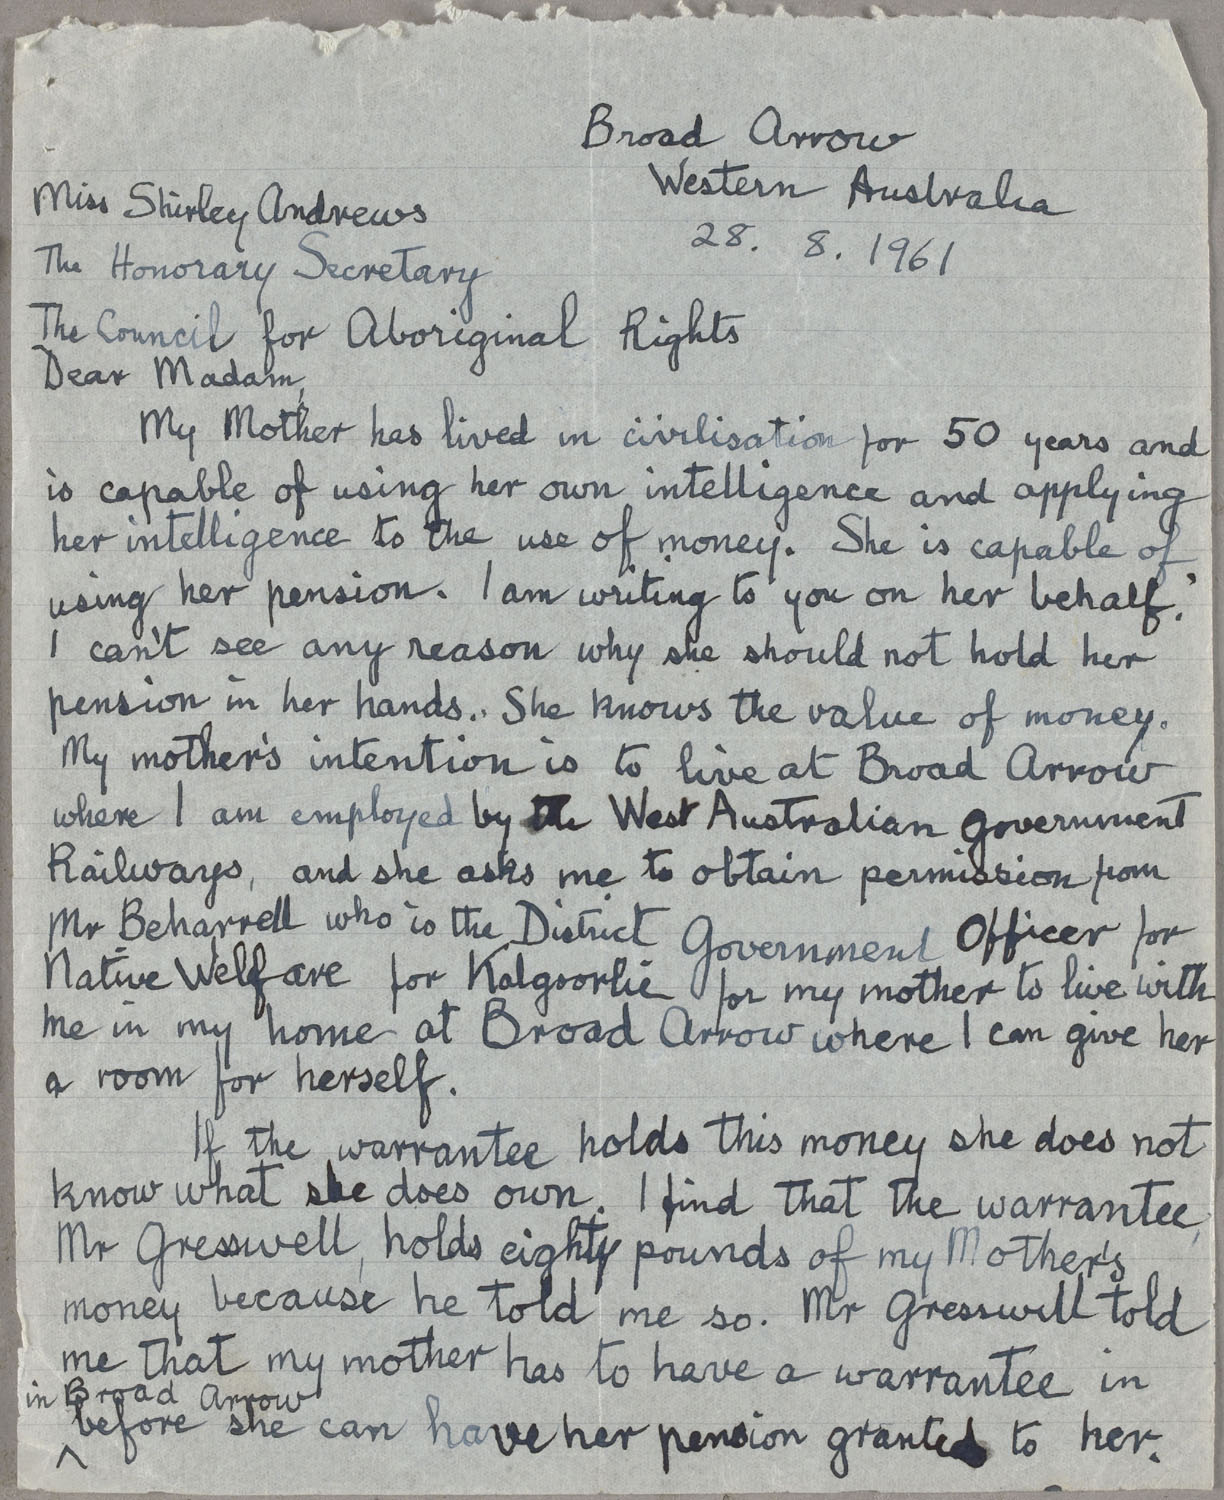 Broad Arrow
Western Australia
28. 8. 1961
Miss Shirley Andrews
The Honorary Secretary
The Council for Aboriginal Rights
Dear Madam,
My Mother has lived in civilisation for 50 years and
is capable of using her own intelligence and applying
her intelligence to the use of money. She is capable of
using her pension. I am writing to you on her behalf.
I can't see any reason why she should not hold her
pension in her hands. She knows the value of money.
My mother's intention is to live at Broad Arrow
where I am employed by the West Australian Government
Railways, and she asks me to obtain permission from
Mr Beharrell who is the District Government Officer for
Native Welfare for Kalgoorlie for my mother to live with
me in my home at Broad Arrow where I can give her
a room for herself.
If the warrantee holds this money she does not
know what she does own. I find that the warrantee,
Mr Gresswell, holds eighty pounds of my Mother's
money because he told me so. Mr Gresswell told
me that my mother has to have a warrantee in
in Broad Arrow
^ before she can have her pension granted to her.